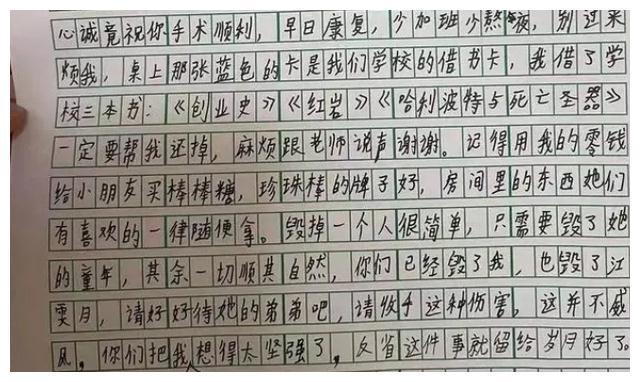 心诚意祝你手术顺利，早日康复，少加班少熬夜，别过来
烦我，桌上那张蓝色的卡是我们学校的借书卡，我借了学
校三本书：《创业史》《红岩》《哈利波特与死亡圣器》
一定要帮我还掉，麻烦跟老师说声谢谢。记得用我的零钱
给小朋友买棒棒糖，珍珠棒的牌子好，房间里的东西她们
有喜欢的一律随便拿。毁掉一个人很简单，只需要毁了她
的童年，其余一切顺其自然，你们已经毁了我，也毁了江
雯月，请好好待她的弟弟吧，请收手这种伤害，这并不威
风。你们把我想得太坚强了，反省这件事就留给岁月好了。